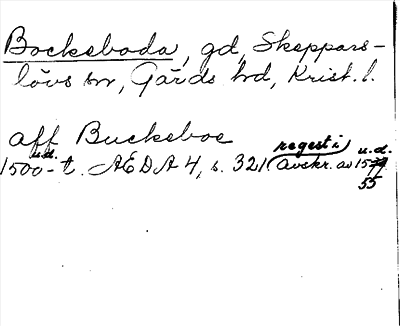 Bocksboda, gd, Skeppars-
lövs sn, Gärds hd, Krist. l.
aff Bucksboe
u.d. regest i u.d.
1500-t. ÆDA 4, s. 321. avskr. av 1577
55